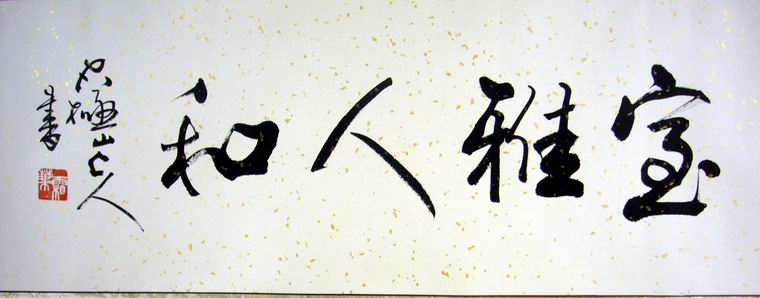 室雅人和
極山人
書